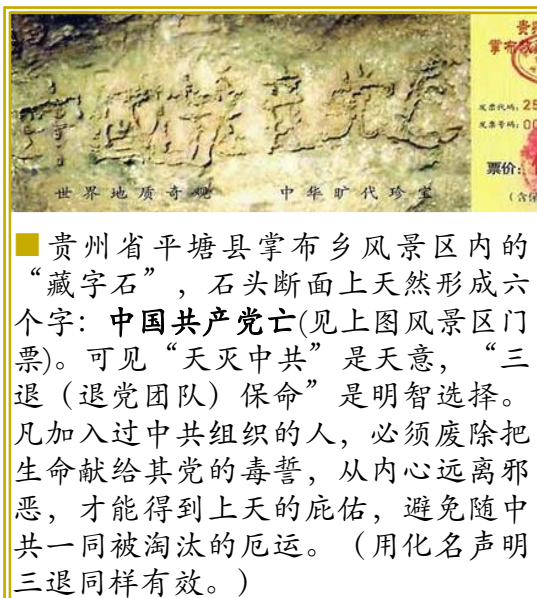 贵
掌布
发票代码: 25
发票号码: 00
票价:
(含保
世界地质奇观 中华旷代珍宝
■贵州省平塘县掌布乡风景区内的
“藏字石”,石头断面上天然形成六
个字:中国共产党亡(见上图风景区门
票)。可见“天灭中共”是天意,“三
退(退党团队)保命”是明智选择。
凡加入过中共组织的人,必须废除把
生命献给其党的毒誓,从内心远离邪
恶,才能得到上天的庇佑,避免随中
共一同被淘汰的厄运。(用化名声明
三退同样有效。)